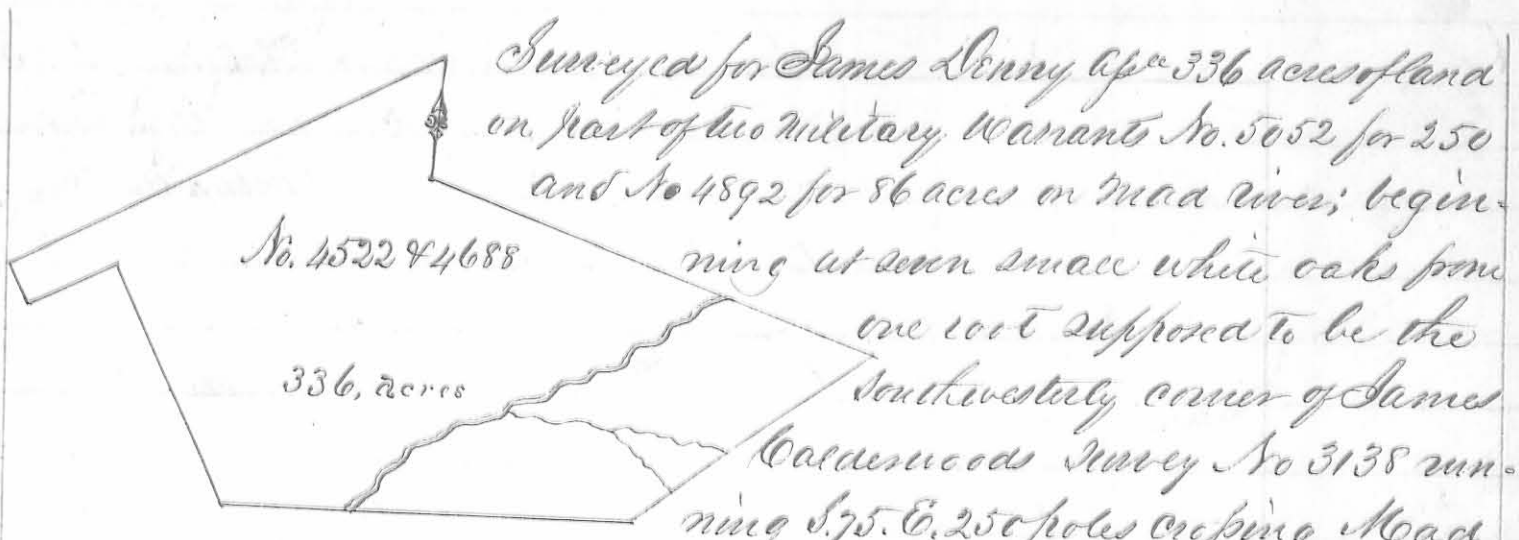 Surveyed for James Denny Assee 336 acres of land
on part of two Military Warrants No. 5052 for 250
and No 4892 for 86 acres on Mad river; begin-
ning at seven small white oaks from
one root supposed to be the
Southwesterly corner of James
Calderwoods Survey No 3138 run-
ning S.75.E.250 poles crossing Mad
No. 4522 & 4688
336, acres